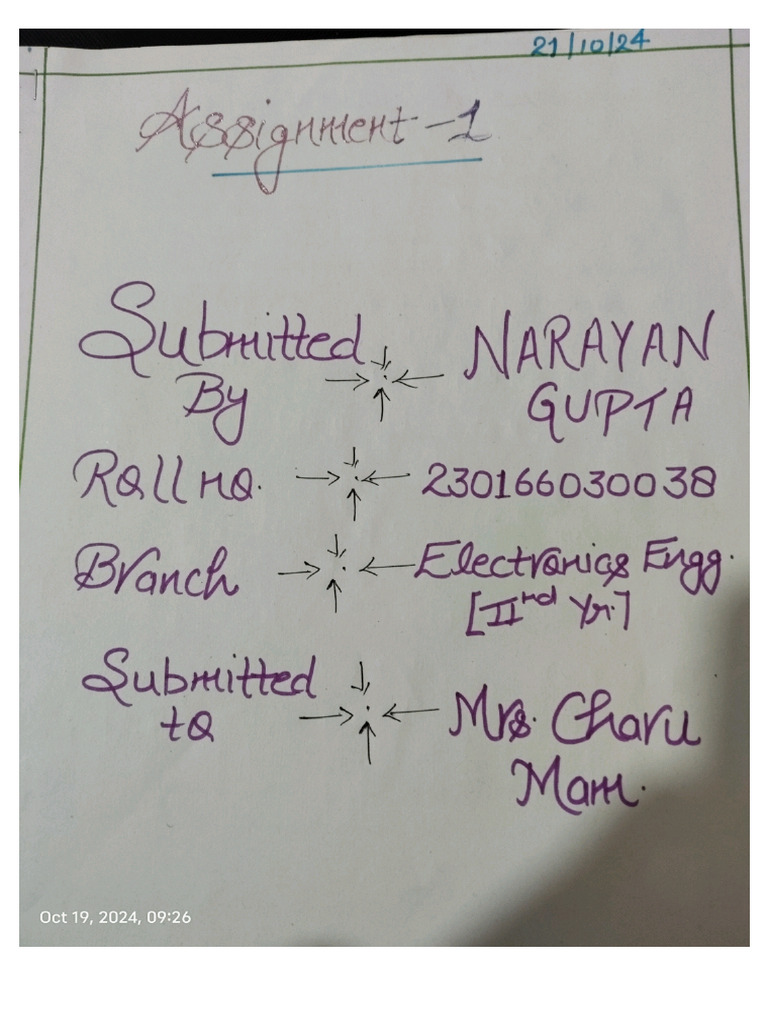 21/10/24
Assignment-1
Submitted NARAYAN
By GUPTA
Roll no. 230166030038
Branch Electronics Engg.
[IInd Yr.]
Submitted
to Mrs. Charu
Mam.
Oct 19, 2024, 09:26